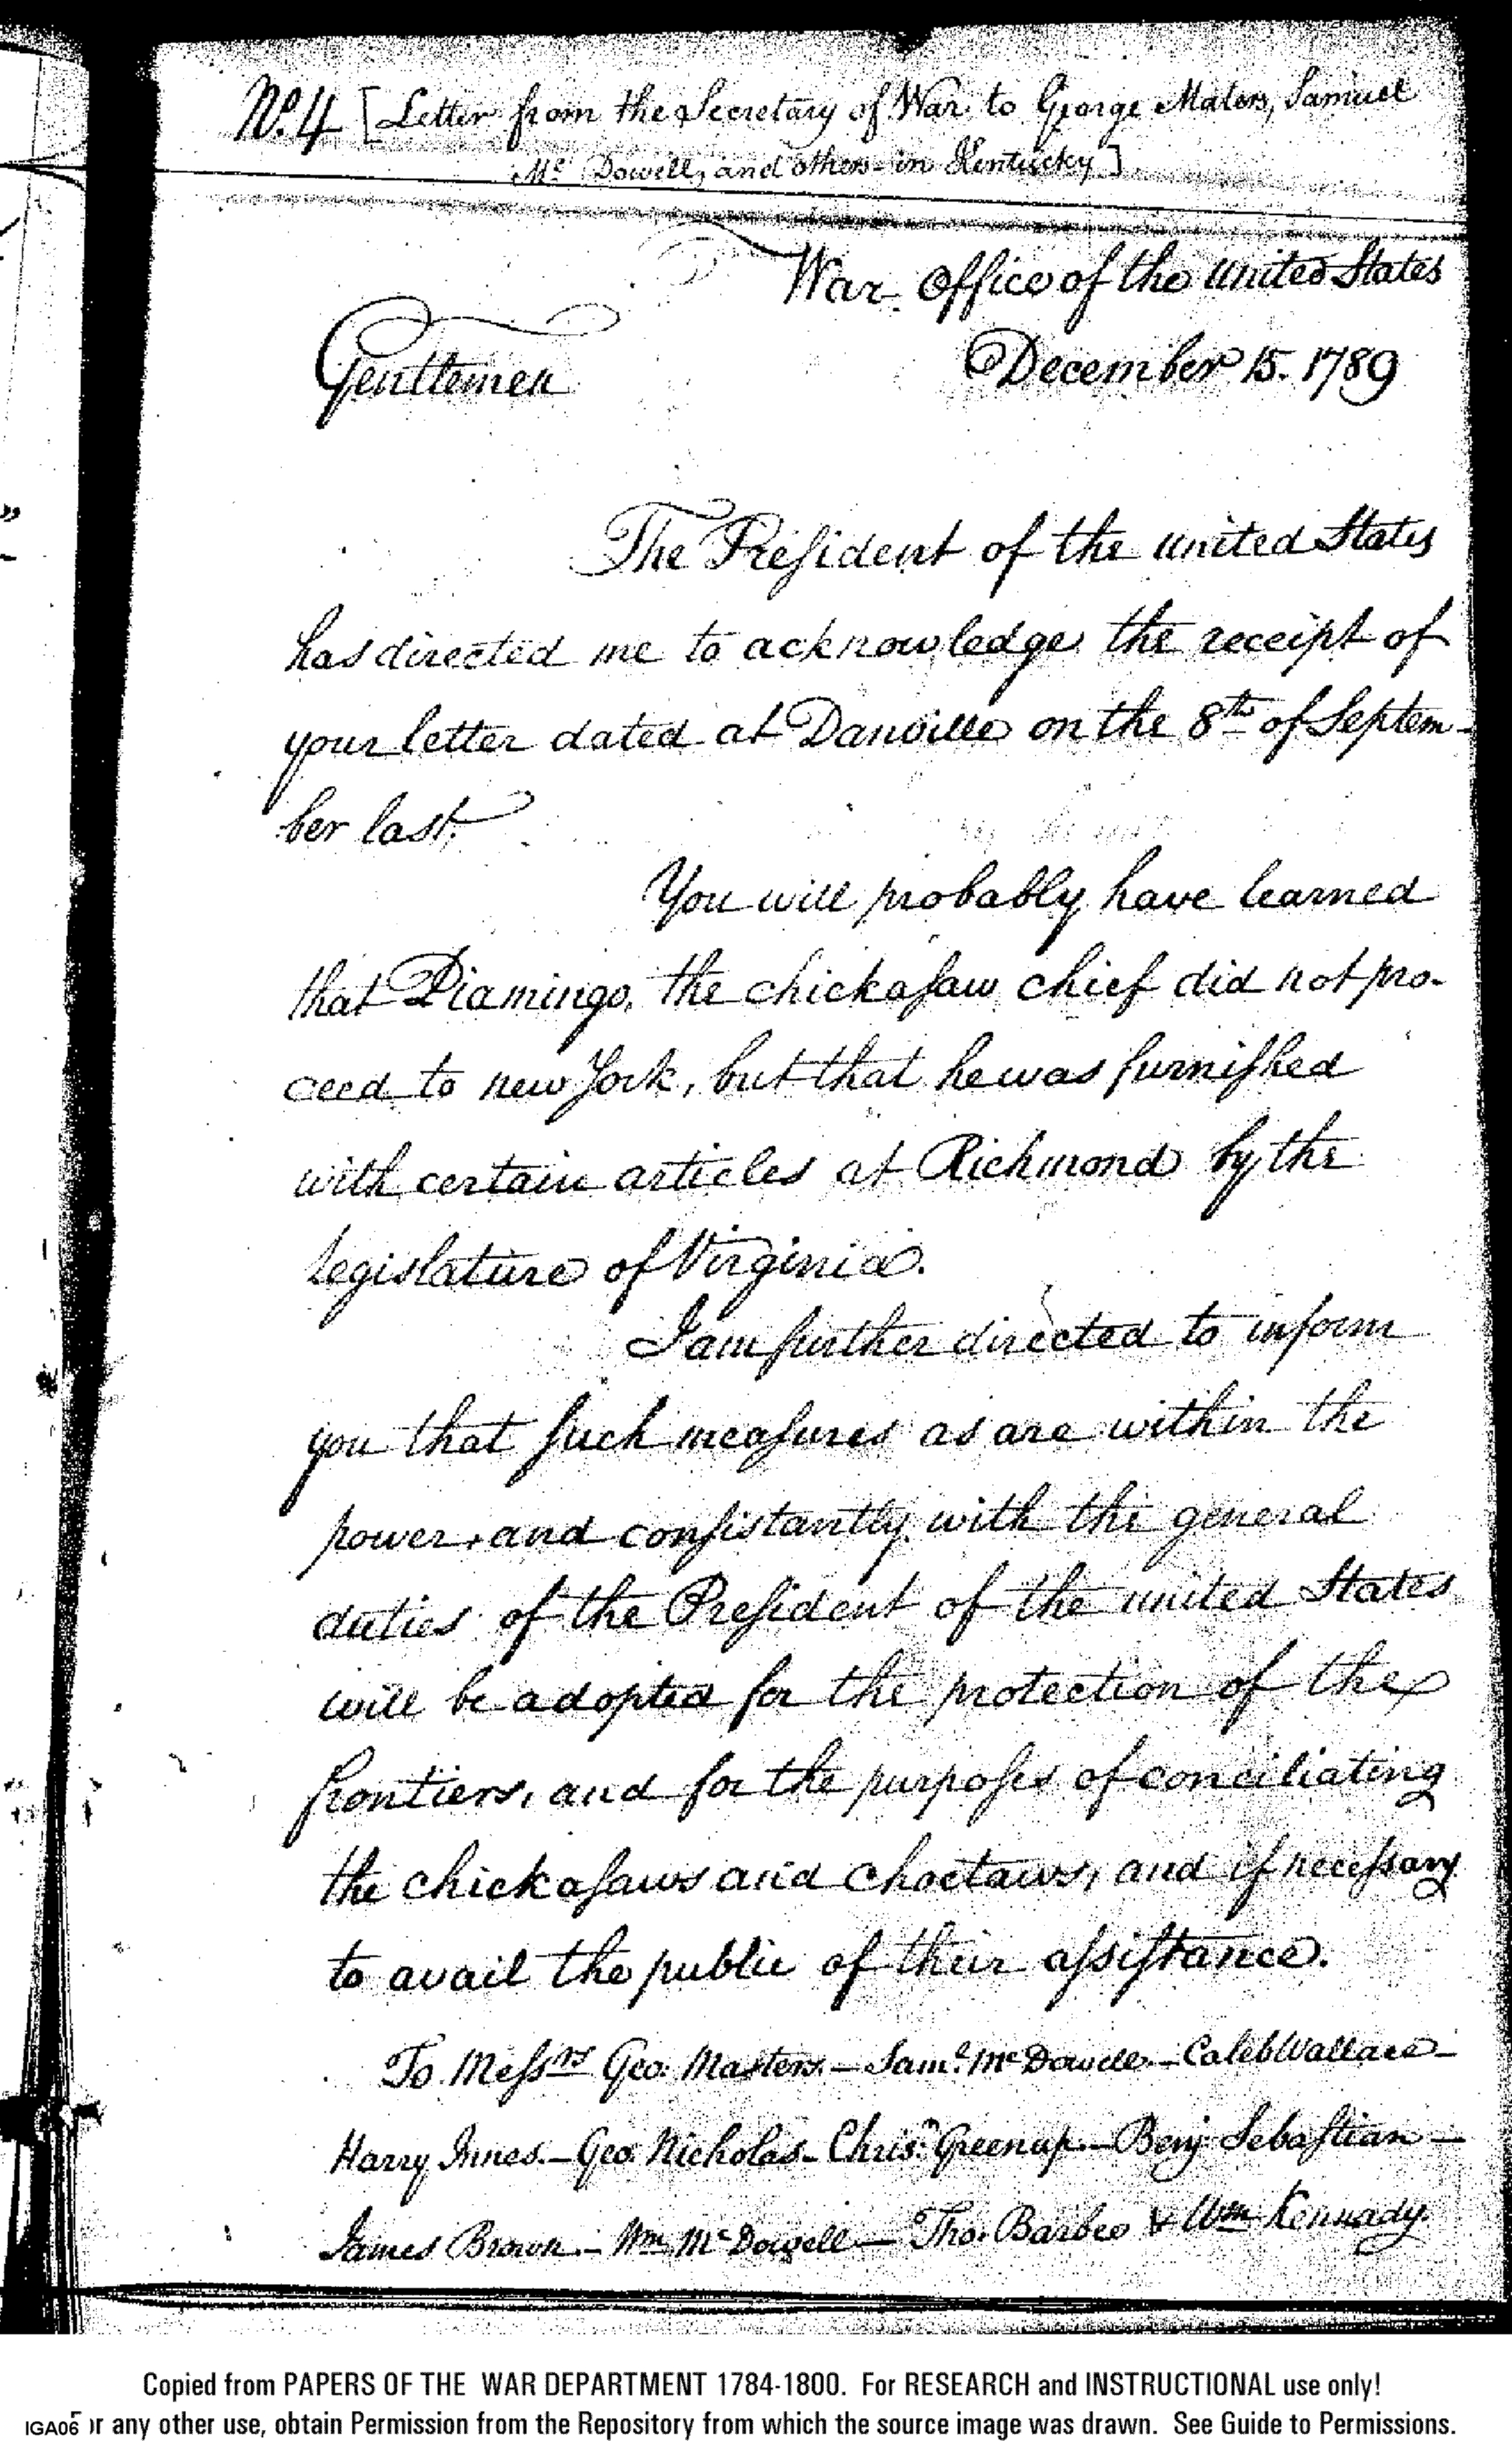 No. 4 [Letter from the Secretary of War to George Maters, Samuel
Mc. Dowell, and others in Kentucky]
War Office of the united States
Gentlemen
December 15. 1789
The President of the united States
has directed me to acknowledge the receipt of
your letter dated at Danville on the 8th of Septem-
ber last.
You will probably have learned
that Piamingo, the chickasaw chief did not pro-
ceed to new York, but that he was furnished
with certain articles at Richmond by the
legislature of Virginia.
I am further directed to inform
you that such measures as are within the
power, and consistantly with the general
duties of the President of the united States
will be adopted for the protection of the
frontiers, and for the purposes of conciliating
the chickasaws and choctaws, and if necessary
to avail the public of their assistance.
To Messrs Geo: Masters.— Saml. Mc Dowell.— Caleb Wallace—
Harry Innes.— Geo. Nicholas— Chrisr. Greenup.— Benj. Sebastian—
James Brown.— Wm. Mc Dowell— Tho. Barbee & Wm Kennady.
Copied from PAPERS OF THE WAR DEPARTMENT 1784-1800. For RESEARCH and INSTRUCTIONAL use only!
IGA06 or any other use, obtain Permission from the Repository from which the source image was drawn. See Guide to Permissions.